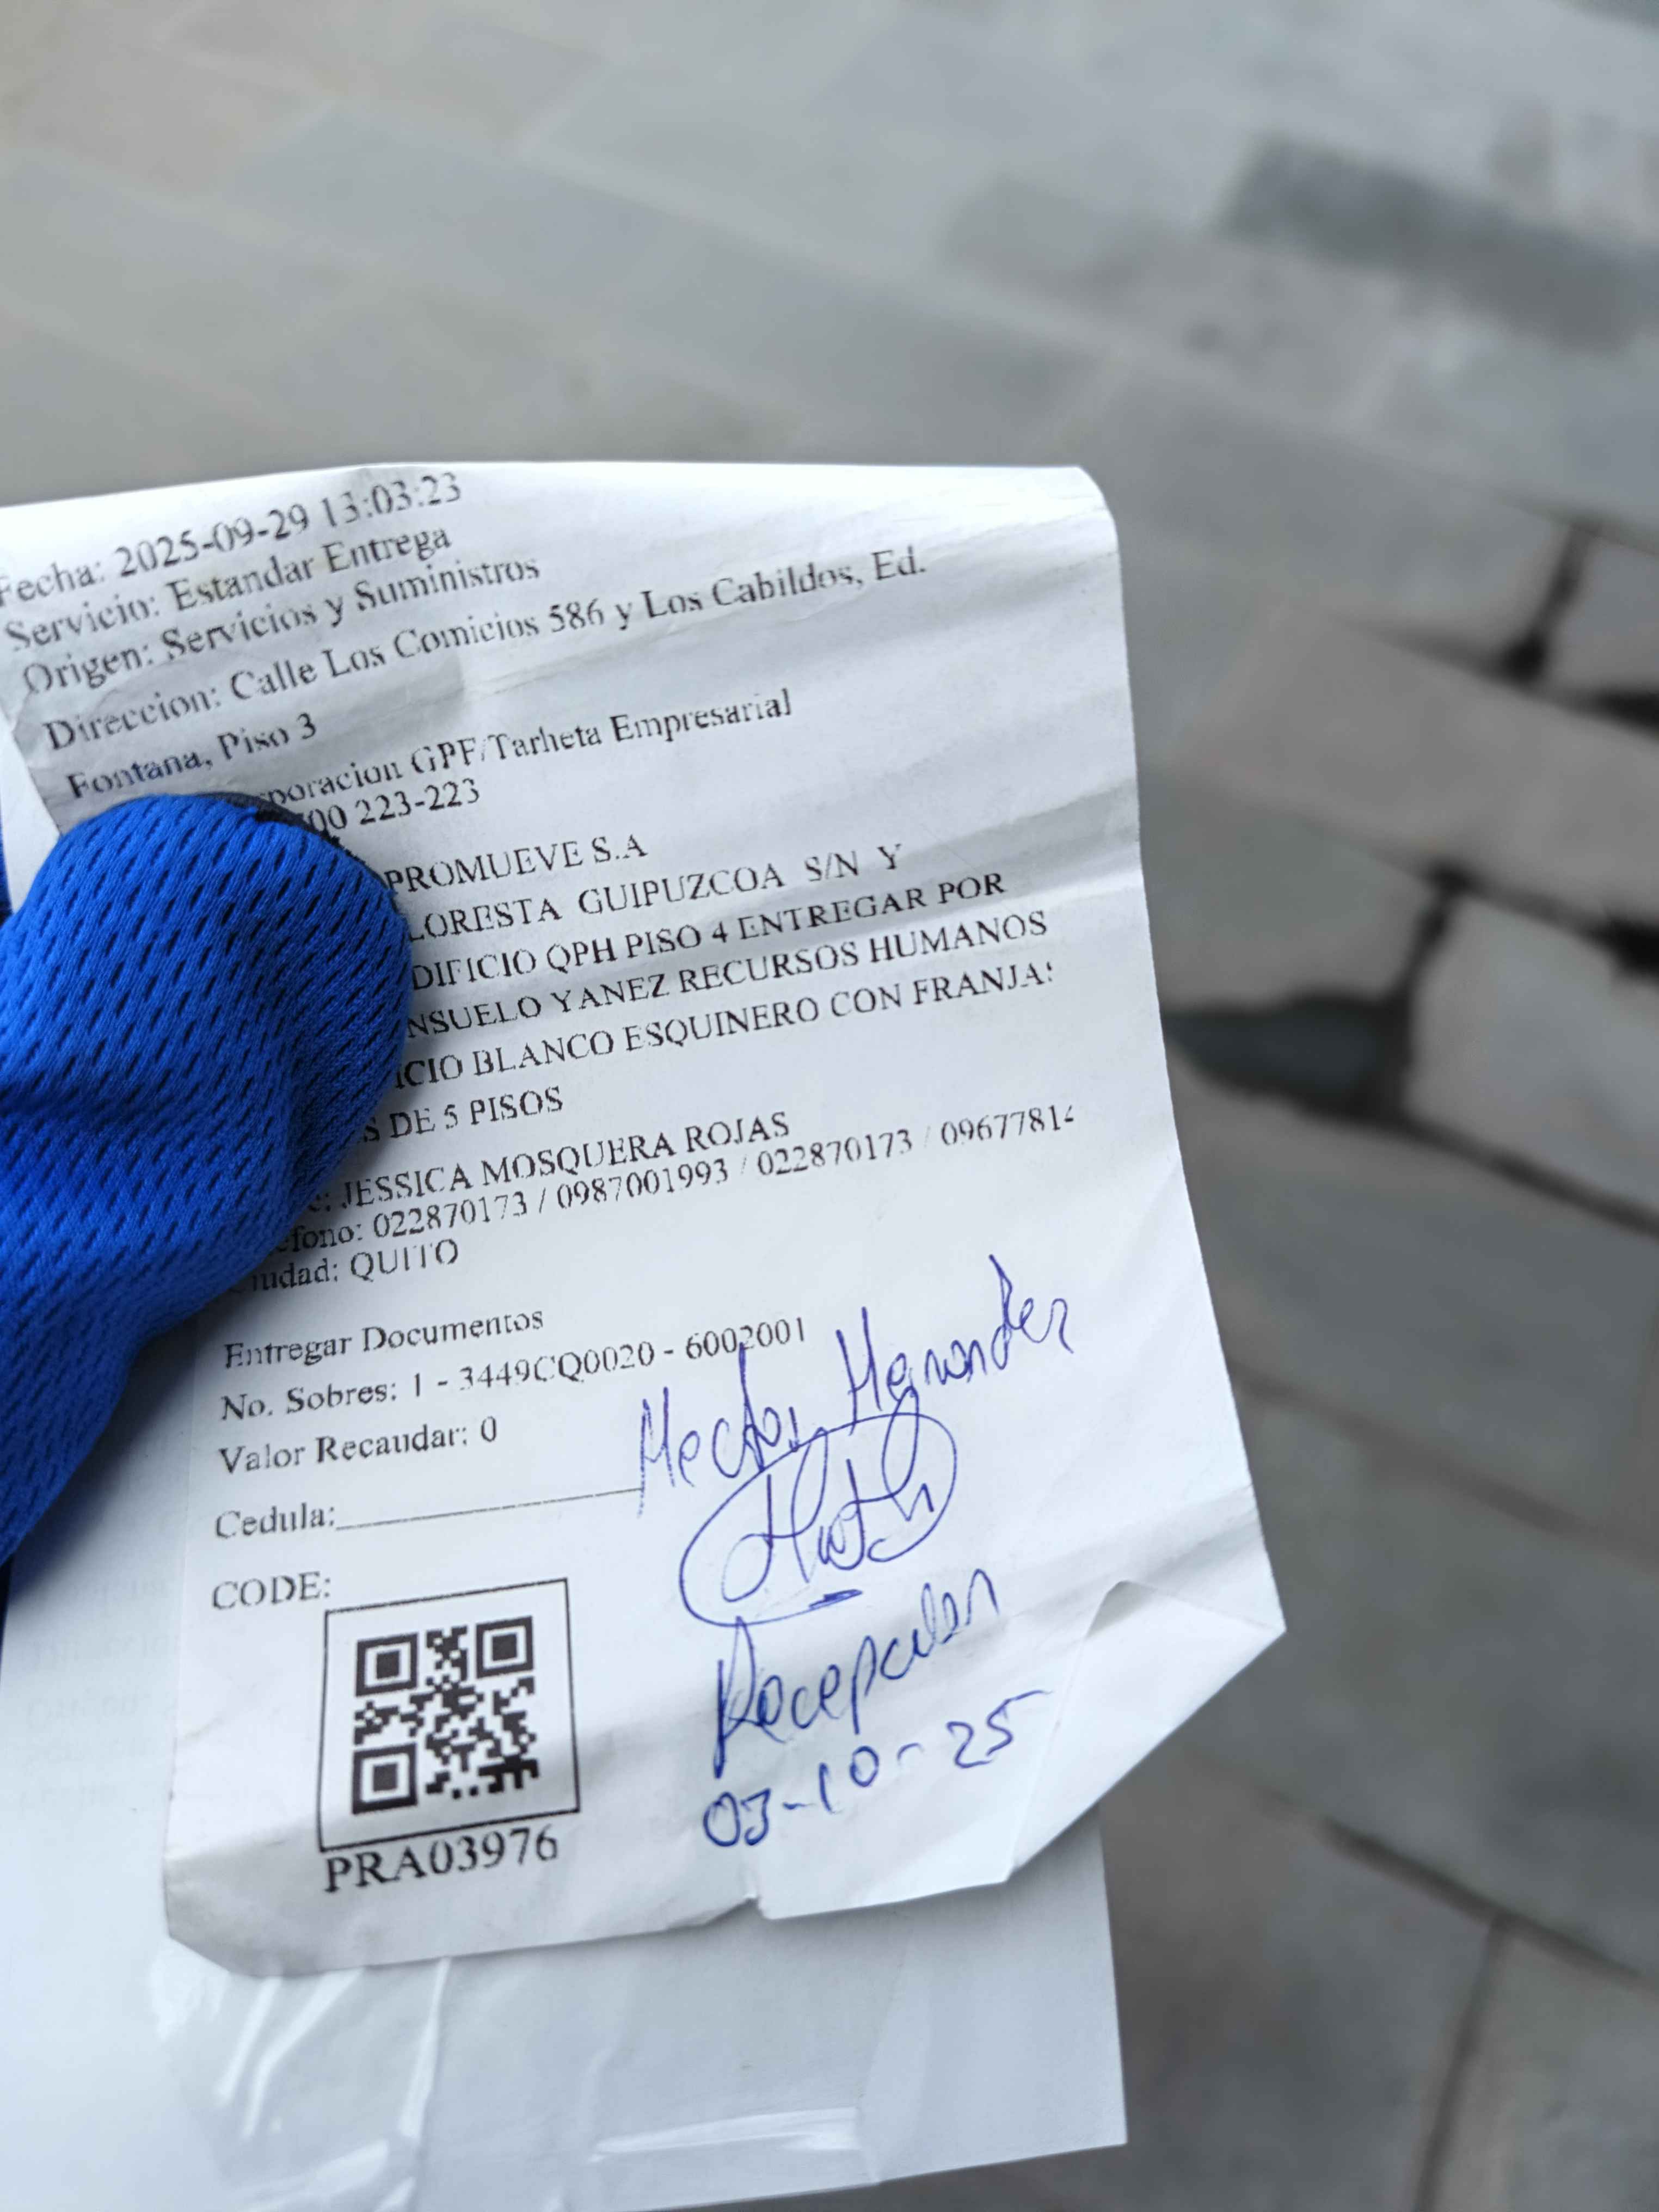 Fecha: 2025-09-29 13:03:23
Servicio: Estandar Entrega
Origen: Servicios y Suministros
Direccion: Calle Los Comicios 586 y Los Cabildos, Ed.
Fontana, Piso 3
poracion GPF/Tarheta Empresarial
00 223-223
PROMUEVE S.A
LORESTA GUIPUZCOA S/N Y
DIFICIO QPH PISO 4 ENTREGAR POR
NSUELO YANEZ RECURSOS HUMANOS
ICIO BLANCO ESQUINERO CON FRANJAS
S DE 5 PISOS
: JESSICA MOSQUERA ROJAS
efono: 022870173 / 0987001993 / 022870173 / 09677814
iudad: QUITO
Entregar Documentos
No. Sobres: 1 - 3449CQ0020 - 6002001
Valor Recaudar: 0
Hector Hernandez
Cedula:
CODE:
Recepcion
03-10-25
PRA03976